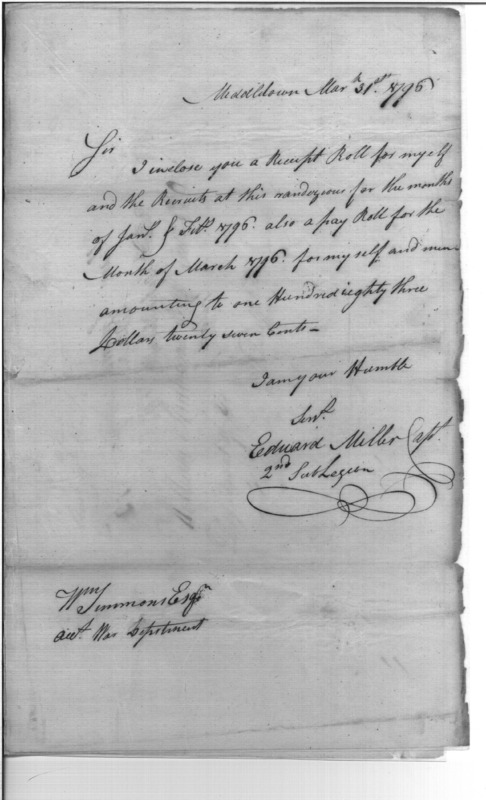 Middeldown Mar^h 31^st. 1796
Sir
I inclose you a Receipt Roll for myself
and the Recruits at this randezvous for the months
of Jan^y. & Feb^y. 1796. also a pay Roll for the
Month of March 1796. for my self and men
amounting to one Hundred eighty three
Dollars twenty seven Cents—
I am your Humble
Serv^t.
Edward Miller Capt.
2^nd Sub Legion
W^m Simmons Esq^r
acct. War Depatment